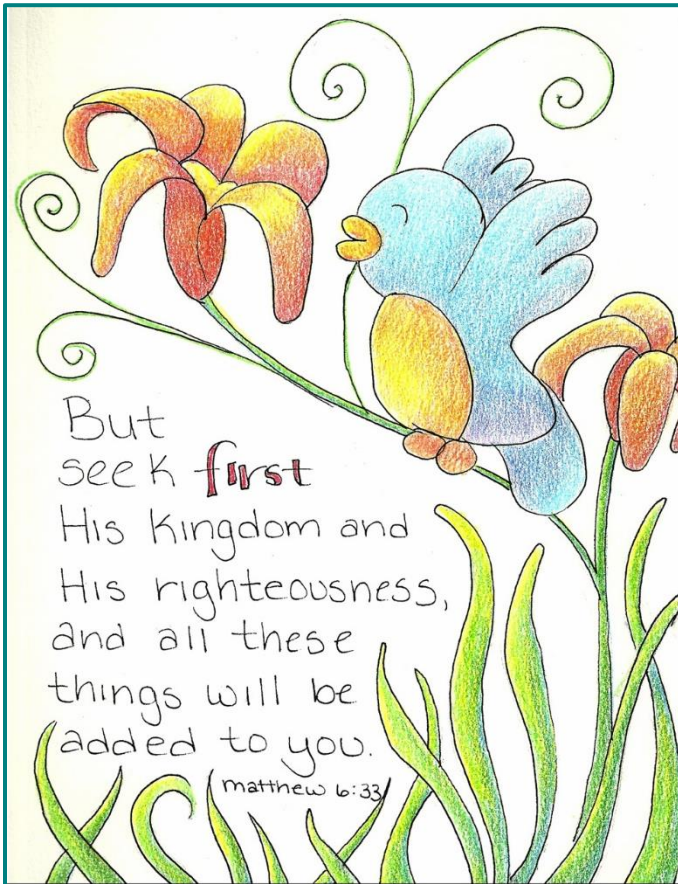 But
seek first
His kingdom and
His righteousness,
and all these
things will be
added to you.
matthew 6:33